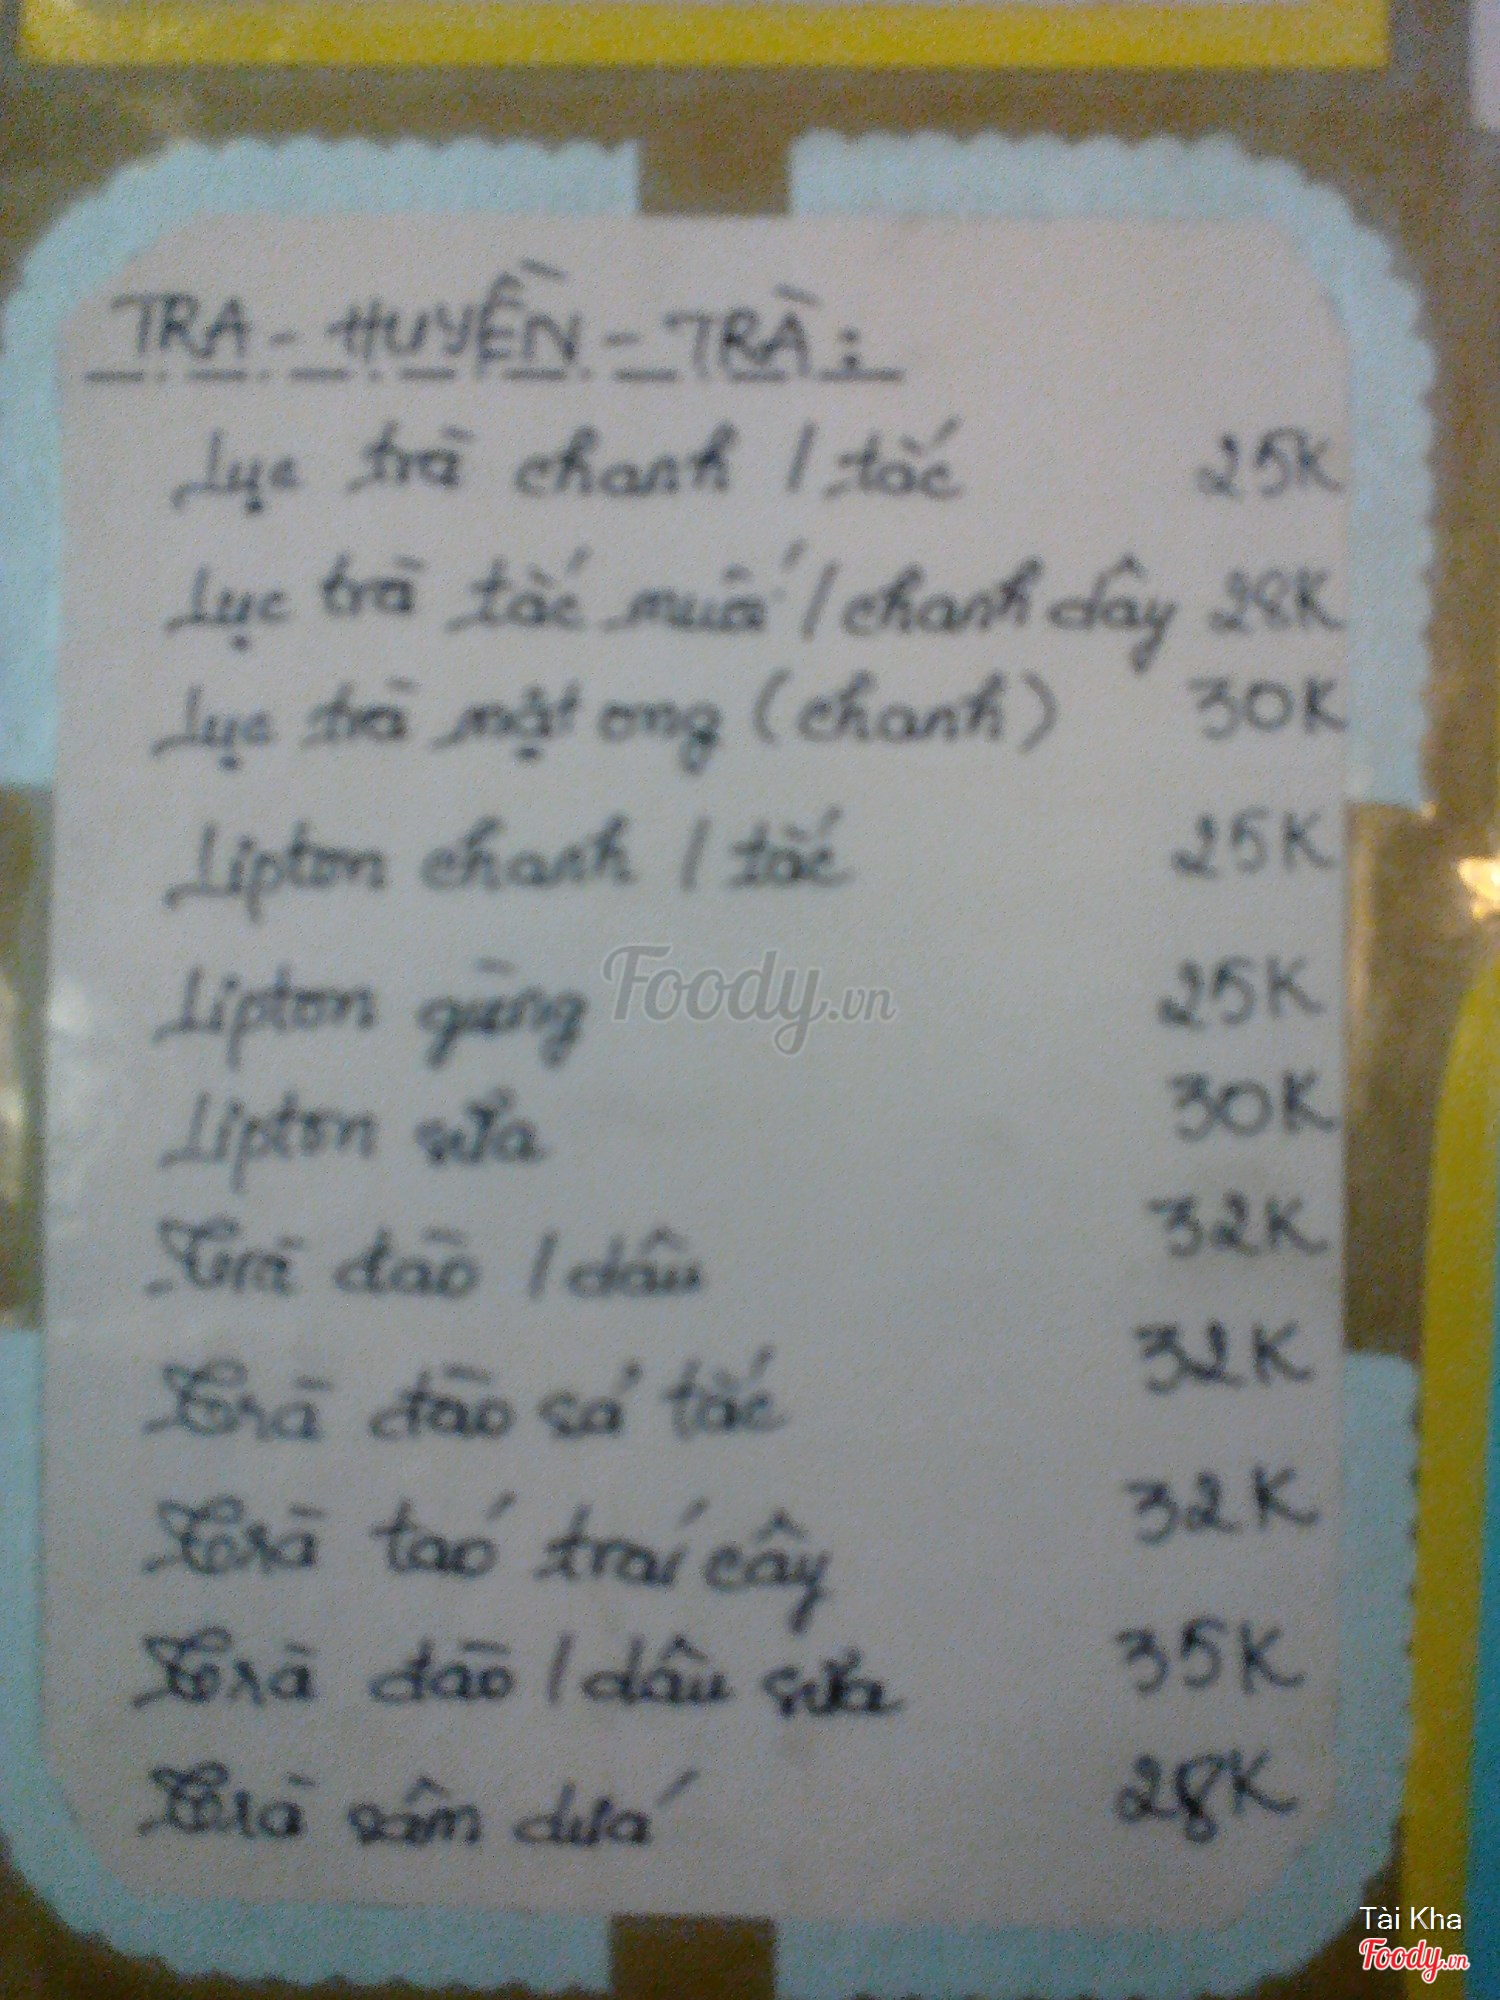 TRA - HUYỀN - TRÀ:
Lục trà chanh / tắc 25K
Lục trà tắc muối / chanh dây 28K
Lục trà mật ong (chanh) 30K
Lipton chanh / tắc 25K
Lipton gừng 25K
Foody.vn
Lipton sữa 30K
Trà đào / dâu 32K
Trà đào sả tắc 32K
Trà táo trái cây 32K
Trà đào / dâu sữa 35K
Trà sâm dứa 28K
Tài Kha
Foody.vn